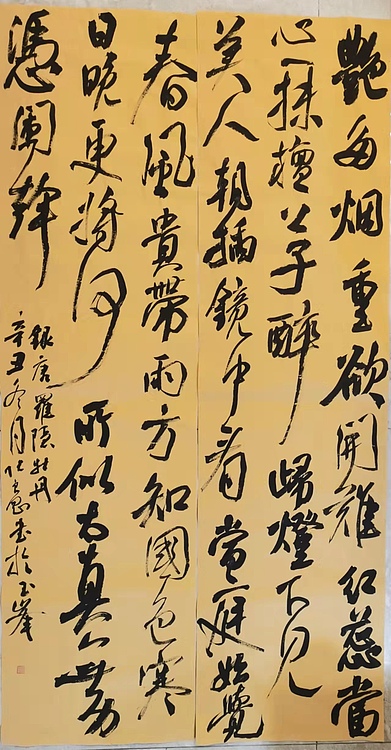 艷多烟重欲開難紅蕊當
心一抹檀公子醉歸燈下見
美人朝插鏡中看當庭始覺
春風貴帶雨方知國色寒
日晚更將何所似太真無力
憑闌幹
録唐羅隱牡丹
辛丑冬月書於玉峯